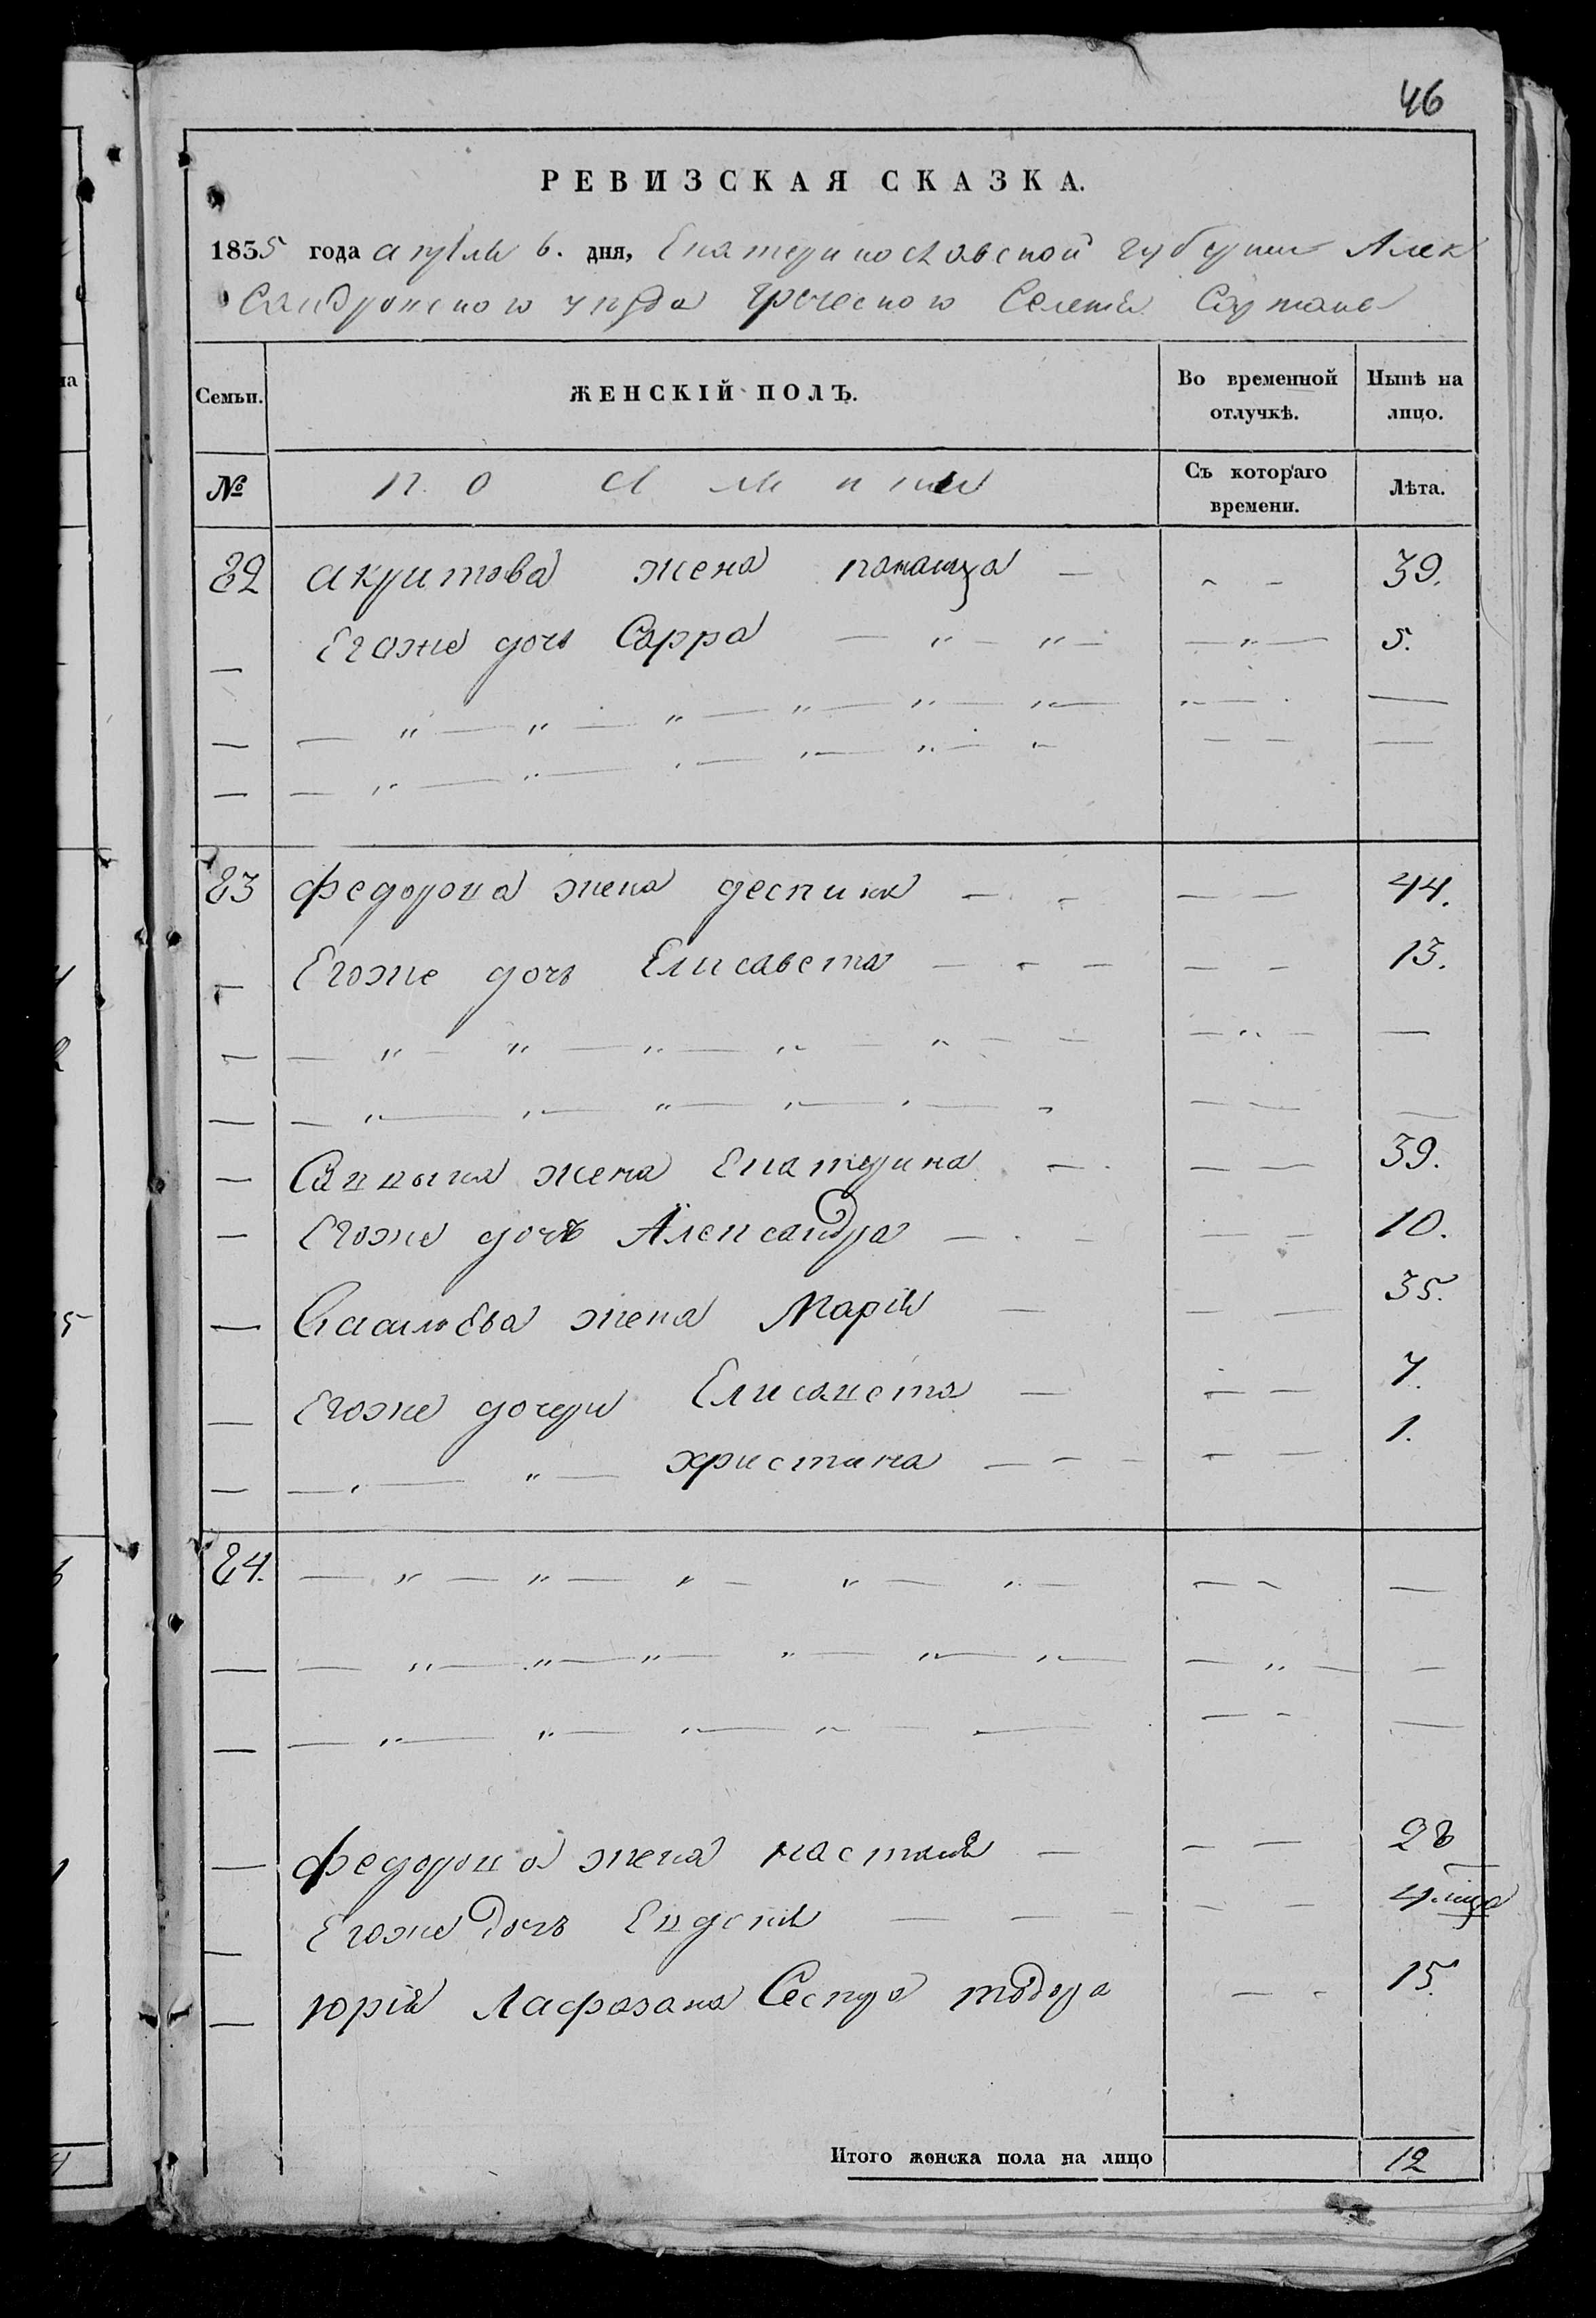 46
РЕВИЗСКАЯ СКАЗКА.
1835 года апреля 6. дня, Екатеринославской губернии Алек
Сандровского уезда греческого Селения Сартане
Семьи.
ЖЕНСКІЙ ПОЛЪ.
Во временной отлучкѣ.
Нынѣ на лицо.
№
Съ котораго времени.
Лѣта.
82 акритова жена 39.
Егоже дочь Сарра 5.
83 федорова жена деспина 44.
Егоже дочь Елисавета 13.
жена Екатерина 39.
Егоже дочь Александра 10.
жена Марія 35.
Егоже дочери Елисавета 7.
христина 1.
84.
федорова жена настасія 28
Егоже дочь Евдокія 4.
юрія Лафазана Сестра тодора 15.
Итого женска пола на лицо 12